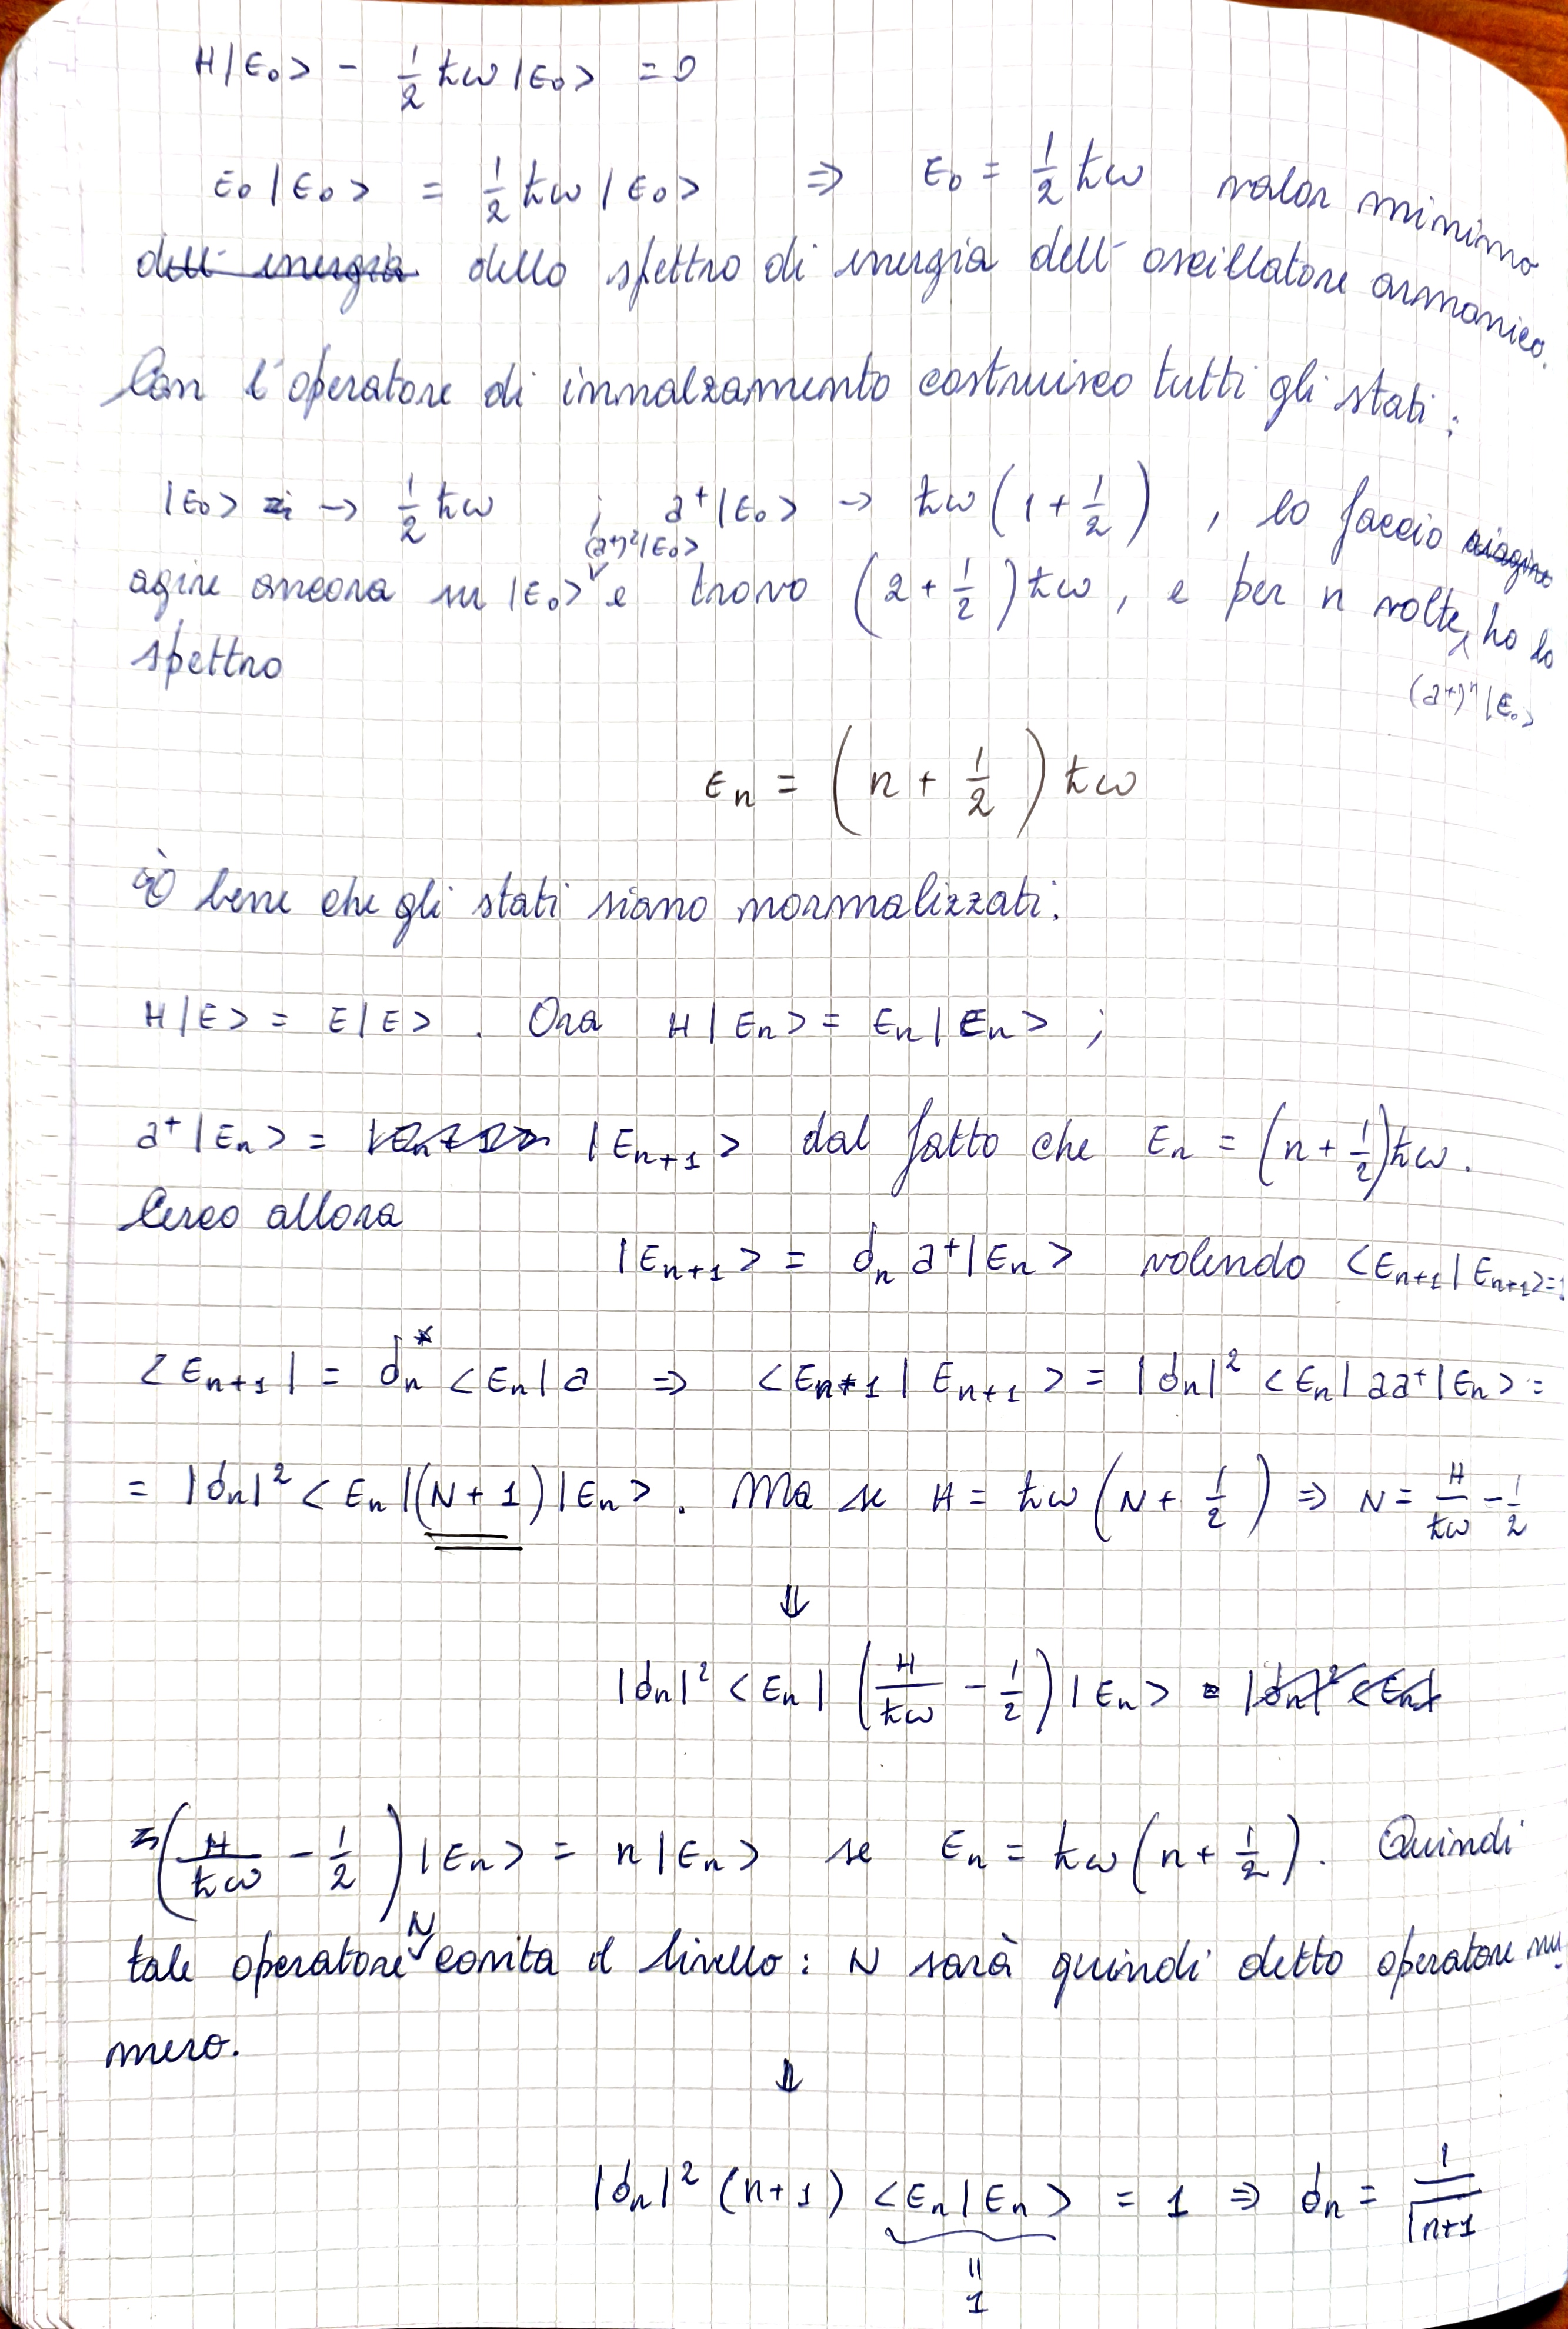 H|E₀> - 1/2 ħω |E₀> = 0
E₀|E₀> = 1/2 ħω |E₀> ⇒ E₀ = 1/2 ħω valor minimo
dell'energia dello spettro di energia dell'oscillatore armonico.
Con l'operatore di innalzamento costruisco tutti gli stati:
|E₀> → 1/2 ħω ; a⁺|E₀> → ħω(1 + 1/2), lo faccio
(a⁺)²|E₀>
agire ancora su |E₀> e trovo (2 + 1/2)ħω, e per n volte, ho lo
spettro
(a⁺)ⁿ|E₀>
Eₙ = (n + 1/2) ħω
È bene che gli stati siano normalizzati.
H|E> = E|E>. Ora H|Eₙ> = Eₙ|Eₙ> ;
a⁺|Eₙ> = |Eₙ₊₁> dal fatto che Eₙ = (n + 1/2)ħω.
Cerco allora
|Eₙ₊₁> = dₙ a⁺|Eₙ> volendo <Eₙ₊₁|Eₙ₊₁> = 1
<Eₙ₊₁| = dₙ* <Eₙ|a ⇒ <Eₙ₊₁|Eₙ₊₁> = |dₙ|² <Eₙ|aa⁺|Eₙ> =
= |dₙ|² <Eₙ|(N + 1)|Eₙ>. Ma se H = ħω(N + 1/2) ⇒ N = H/ħω - 1/2
⇓
|dₙ|² <Eₙ|(H/ħω - 1/2)|Eₙ> = |dₙ|² <Eₙ|
(H/ħω - 1/2)|Eₙ> = n|Eₙ> se Eₙ = ħω(n + 1/2). Quindi
tale operatore N conta il livello: N sarà quindi detto operatore nu-
mero.
⇓
|dₙ|² (n+1) <Eₙ|Eₙ> = 1 ⇒ dₙ = 1/√n+1
॥
1